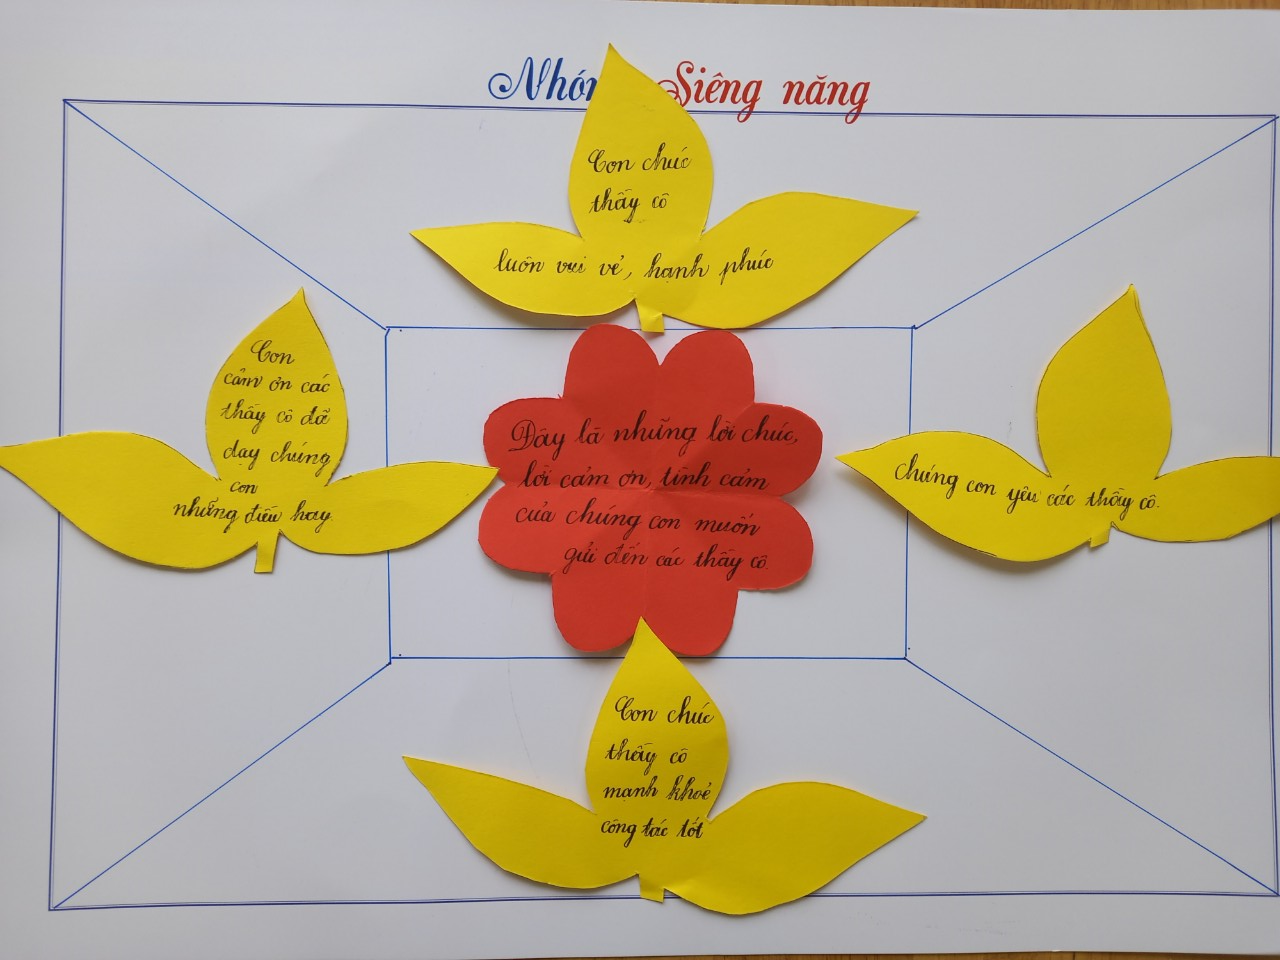 Siêng năng
Con chúc
thầy cô
luôn vui vẻ, hạnh phúc
Con
cảm ơn các
thầy cô đã
dạy chúng
con
những điều hay.
Đây là những lời chúc,
lời cảm ơn, tình cảm
của chúng con muốn
gửi đến các thầy cô.
chúng con yêu các thầy cô.
Con chúc
thầy cô
mạnh khoẻ
công tác tốt